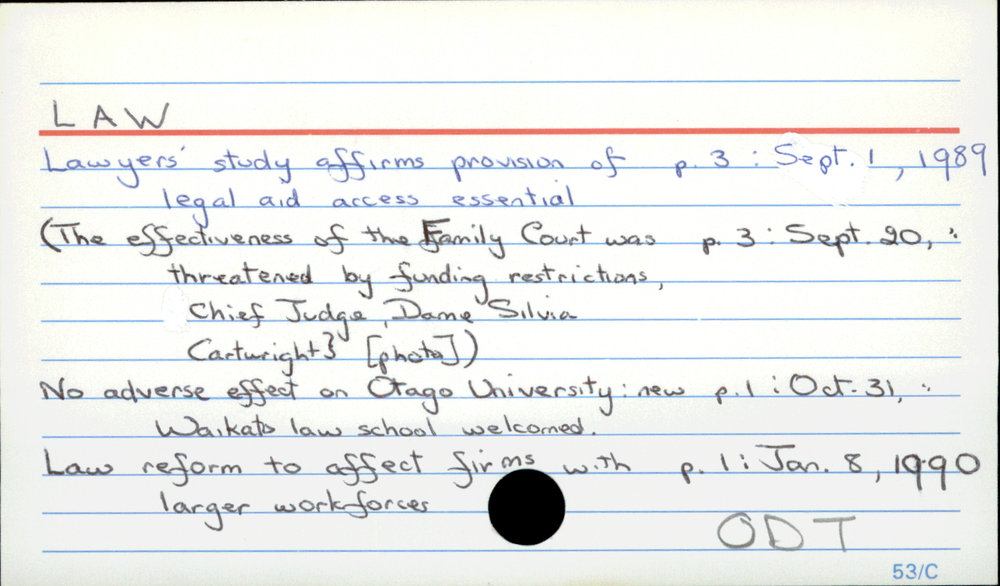 LAW
Lawyers' study affirms provision of p. 3 : Sept. 1, 1989
legal aid access essential
(The effectiveness of the Family Court was p. 3 : Sept. 20, "
threatened by funding restrictions,
Chief Judge, Dame Silvia
Cartwright} [photo])
No adverse effect on Otago University : new p. 1 : Oct. 31, "
Waikato law school welcomed.
Law reform to affect firms with p. 1 : Jan. 8, 1990
larger workforces
ODT
53/C